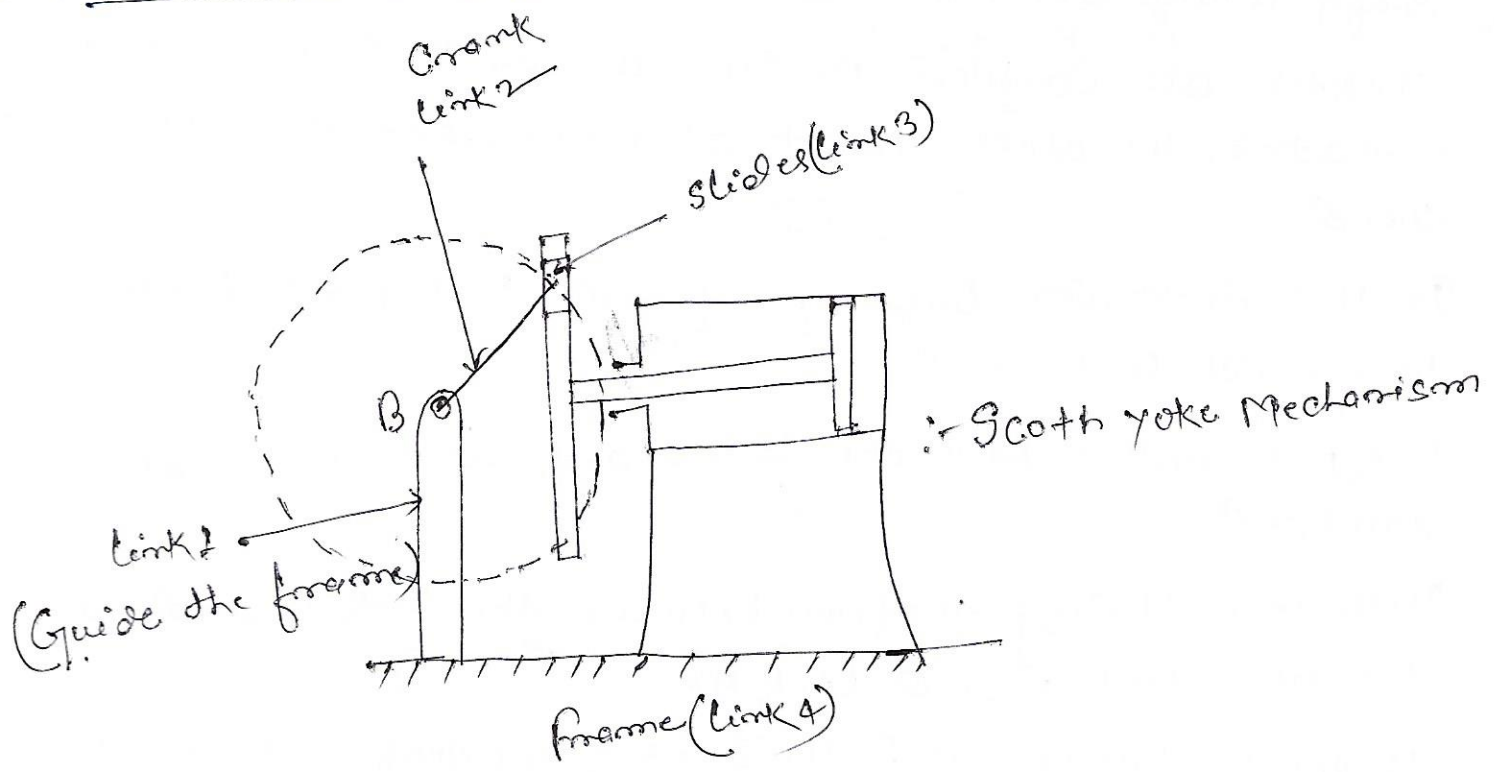 Crank
Link 2
Slides (Link 3)
B
:- Scoth yoke Mechanism
Link 1
(Guide the frame)
frame (Link 4)